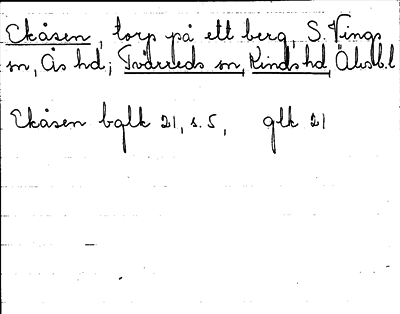 Ekåsen, torp på ett berg, S. Vings
sn, Ås hd; Tvärreds sn, Kinds hd, Älvsb.l
Ekåsen bglk 21, s. 5, glk 21